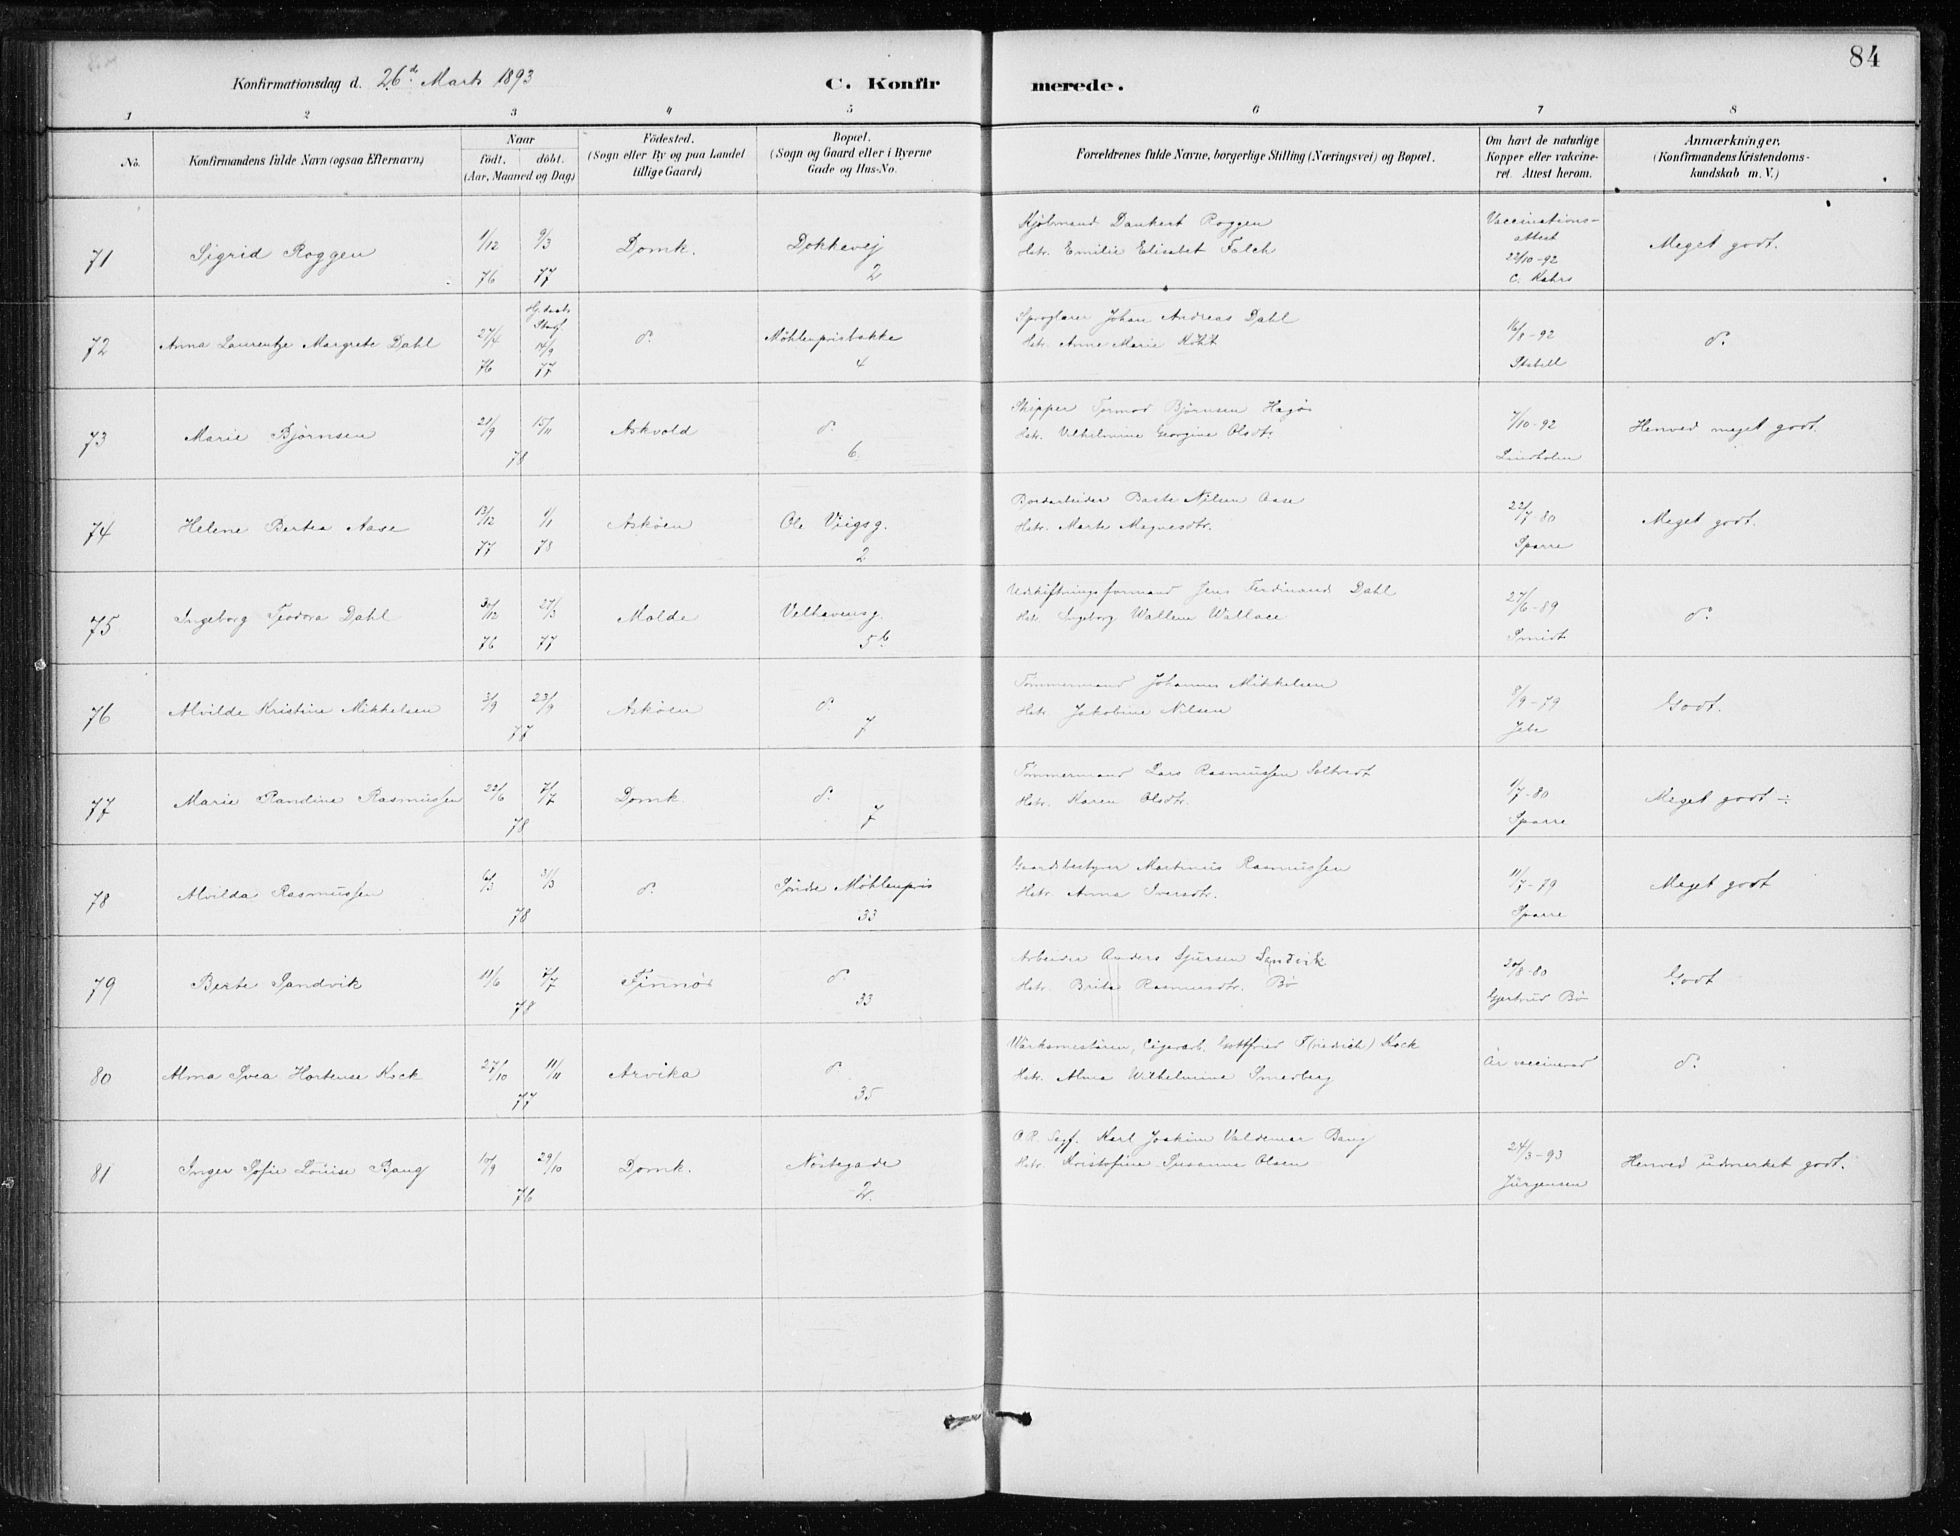 84
Konfirmationsdag d. 26de Marts 1893
C. Konfir merede.
1 2 3 4 5 6 7 8
No. Konfirmandens fulde Navn (ogsaa Efternavn) Naar født. døbt. (Aar, Maaned og Dag) Fødested. (Sogn eller By og paa Landet tillige Gaard) Bopæl. (Sogn og Gaard eller i Byerne Gade og Hus-No. Forældrenes fulde Navne, borgerlige Stilling (Næringsvei) og Bopæl. Om havt de naturlige Kopper eller vakcineret. Attest herom. Anmærkninger. (Konfirmandens Kristendomskundskab m. V.)
71 Sigrid Roggen 1/12 76 9/3 77 Domk. Dokkevej 2 Kjøbmand Dankert Roggen
Hstr. Emilie Elisabet Falch Vaccinationsattest 22/10-92 C. Kahrs Meget godt.
72 Anna Laurentze Margrete Dahl 27/4 76 14/9 77 do. Møhlenprisbakke 4 Sproglærer Johan Andreas Dahl
Hstr. Anne Marie Koht 16/8-92 Stabell do.
73 Marie Bjørnsen 21/9 15/11 78 Askvold do. 6. Skipper Tormod Bjørnsen Hagø
Hstr. Vilhelmine Georgine Olsdtr. 7/10-92 Lindholm Henved meget godt.
74 Helene Bertea Aase 13/12 77 1/1 78 Askøen Ole Viigsg. 2 Bordarbeider Baste Nilsen Aase
Hstr. Marte Magnesdtr. 22/7-80 Sparre Meget godt.
75 Ingeborg Teodora Dahl 30/12 76 27/3 77 Molde Velhavensg. 5b Udskiftningsformand Jens Ferdinand Dahl
Hstr. Ingeborg Wallene Wallace 27/6-89 Smidt do.
76 Alvilde Kristine Mikkelsen 3/9 23/9 77 Askøen do. 7 Tømmermand Johannes Mikkelsen
Hstr. Jakobine Nilsen 8/9-79 Jebe Godt.
77 Marie Randine Rasmussen 22/6 7/7 78 Domk. do. 7 Tømmermand Lars Rasmussen Soltvedt
Hstr. Karen Olsdtr. 1/7-80 Sparre Meget godt ÷
78 Alvilda Rasmussen 6/3 31/3 78 do. Søndre Møhlenpris 33 Gaardsbestyrer Martinus Rasmussen
Hstr. Anna Iversdtr. 11/7-79 Sparre Meget godt
79 Berte Sandvik 11/6 7/7 78 Finnøs do. 33 Arbeider Anders Sjursen Sandvik
Hstr. Brita Rasmusdtr. Bø 20/8-80 Gjertrud Bø Godt
80 Alma Svea Hortense Kock 27/10 11/11 77 Arvika do. 35 Wärksmestaren, Cigararb. Gottfried F(riedrich) Kock
Hstr. Alma Wilhelmina Smedberg Är vaccinerad do.
81 Inger Sofie Louise Bang 10/9 29/10 76 Domk. Nøstegade 2. O.R. Sagf. Karl Joakim Valdemar Bang
Hstr. Kristofine Susanna Olsen 24/3-93 Jürgensen Henved udmerket godt.